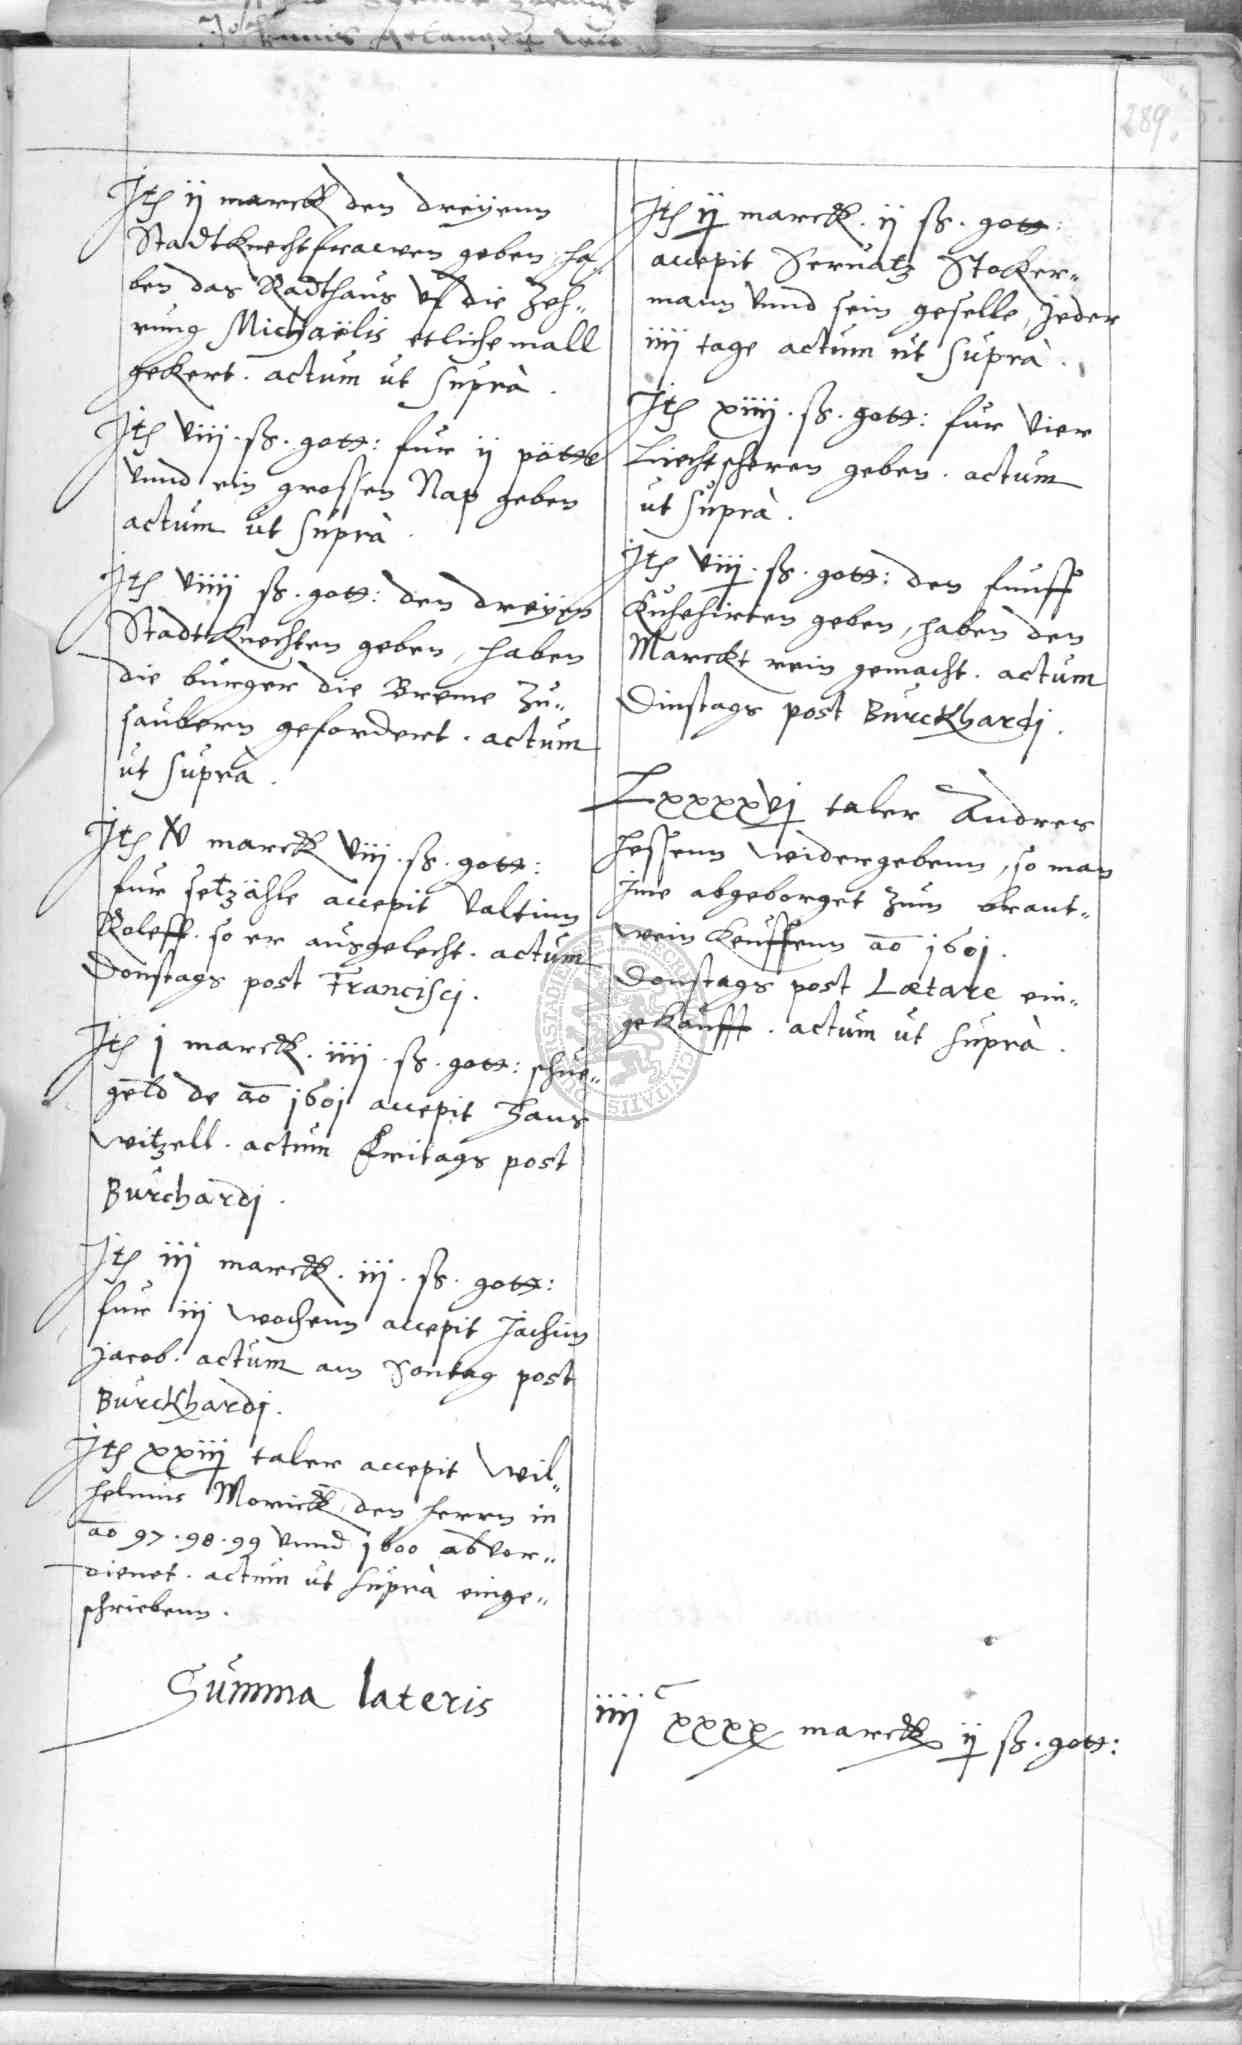 289.
Jtem ij marck den dreyenn
Stadtknechtfrauwen geben, ha¬
ben das Radthaus uf die Zeh¬
rung Michaëlis etlichemall
gekert. actum ut suprà.
Jtem viij. ß. gott: fur ij pötte
unnd ein grossen Nap geben
actum ut suprà.
Jtem viiij ß. gott: den dreyen
Stadtknechten geben, haben
die burger die Breme zu¬
saubern gefordert. actum
ut suprà.
Jtem xv marck viij. ß. gott:
fur setzähle accepit Valtinn
Roleff. so er ausgelecht. actum
Donstags post Francisci.
Jtem j marck. iiij. ß. gott: schue¬
geld de ao 1601 accepit Hans
Witzell. actum Freitags post
Burchardj.
Jtem iij marck. iij. ß. gott:
fur iij wochenn accepit Jachim
Jacob. actum am Sontag post
Burckhardj.
Jtem xxiij taler accepit Wil¬
helmus Morick, den herrn in
ao 97. 98. 99 unnd 1600 abver¬
dienet. actum ut suprà einge¬
schriebenn.
Summa lateris
Jtem ij marck. ij ß. gott:
accepit Servatz Stoker¬
mann unnd sein geselle, Jeder
iiij tage actum ut suprà.
Jtem xiiij. ß. gott: fur vier
Liechtscheren geben. actum
ut suprà.
Jtem viij. ß. gott: den funff
Kuhehirten geben, haben den
Marckt rein gemacht. actum
Dinstags post Burckhardj.
Lxxxxvj taler Andres
Hessenn widergebenn, so man
Jme abgeborget zum brant¬
wein keuffenn ao 1601.
Donstags post Lætare ein¬
gekaufft. actum ut suprà.
iiij C xxxx marck ij ß. gott: